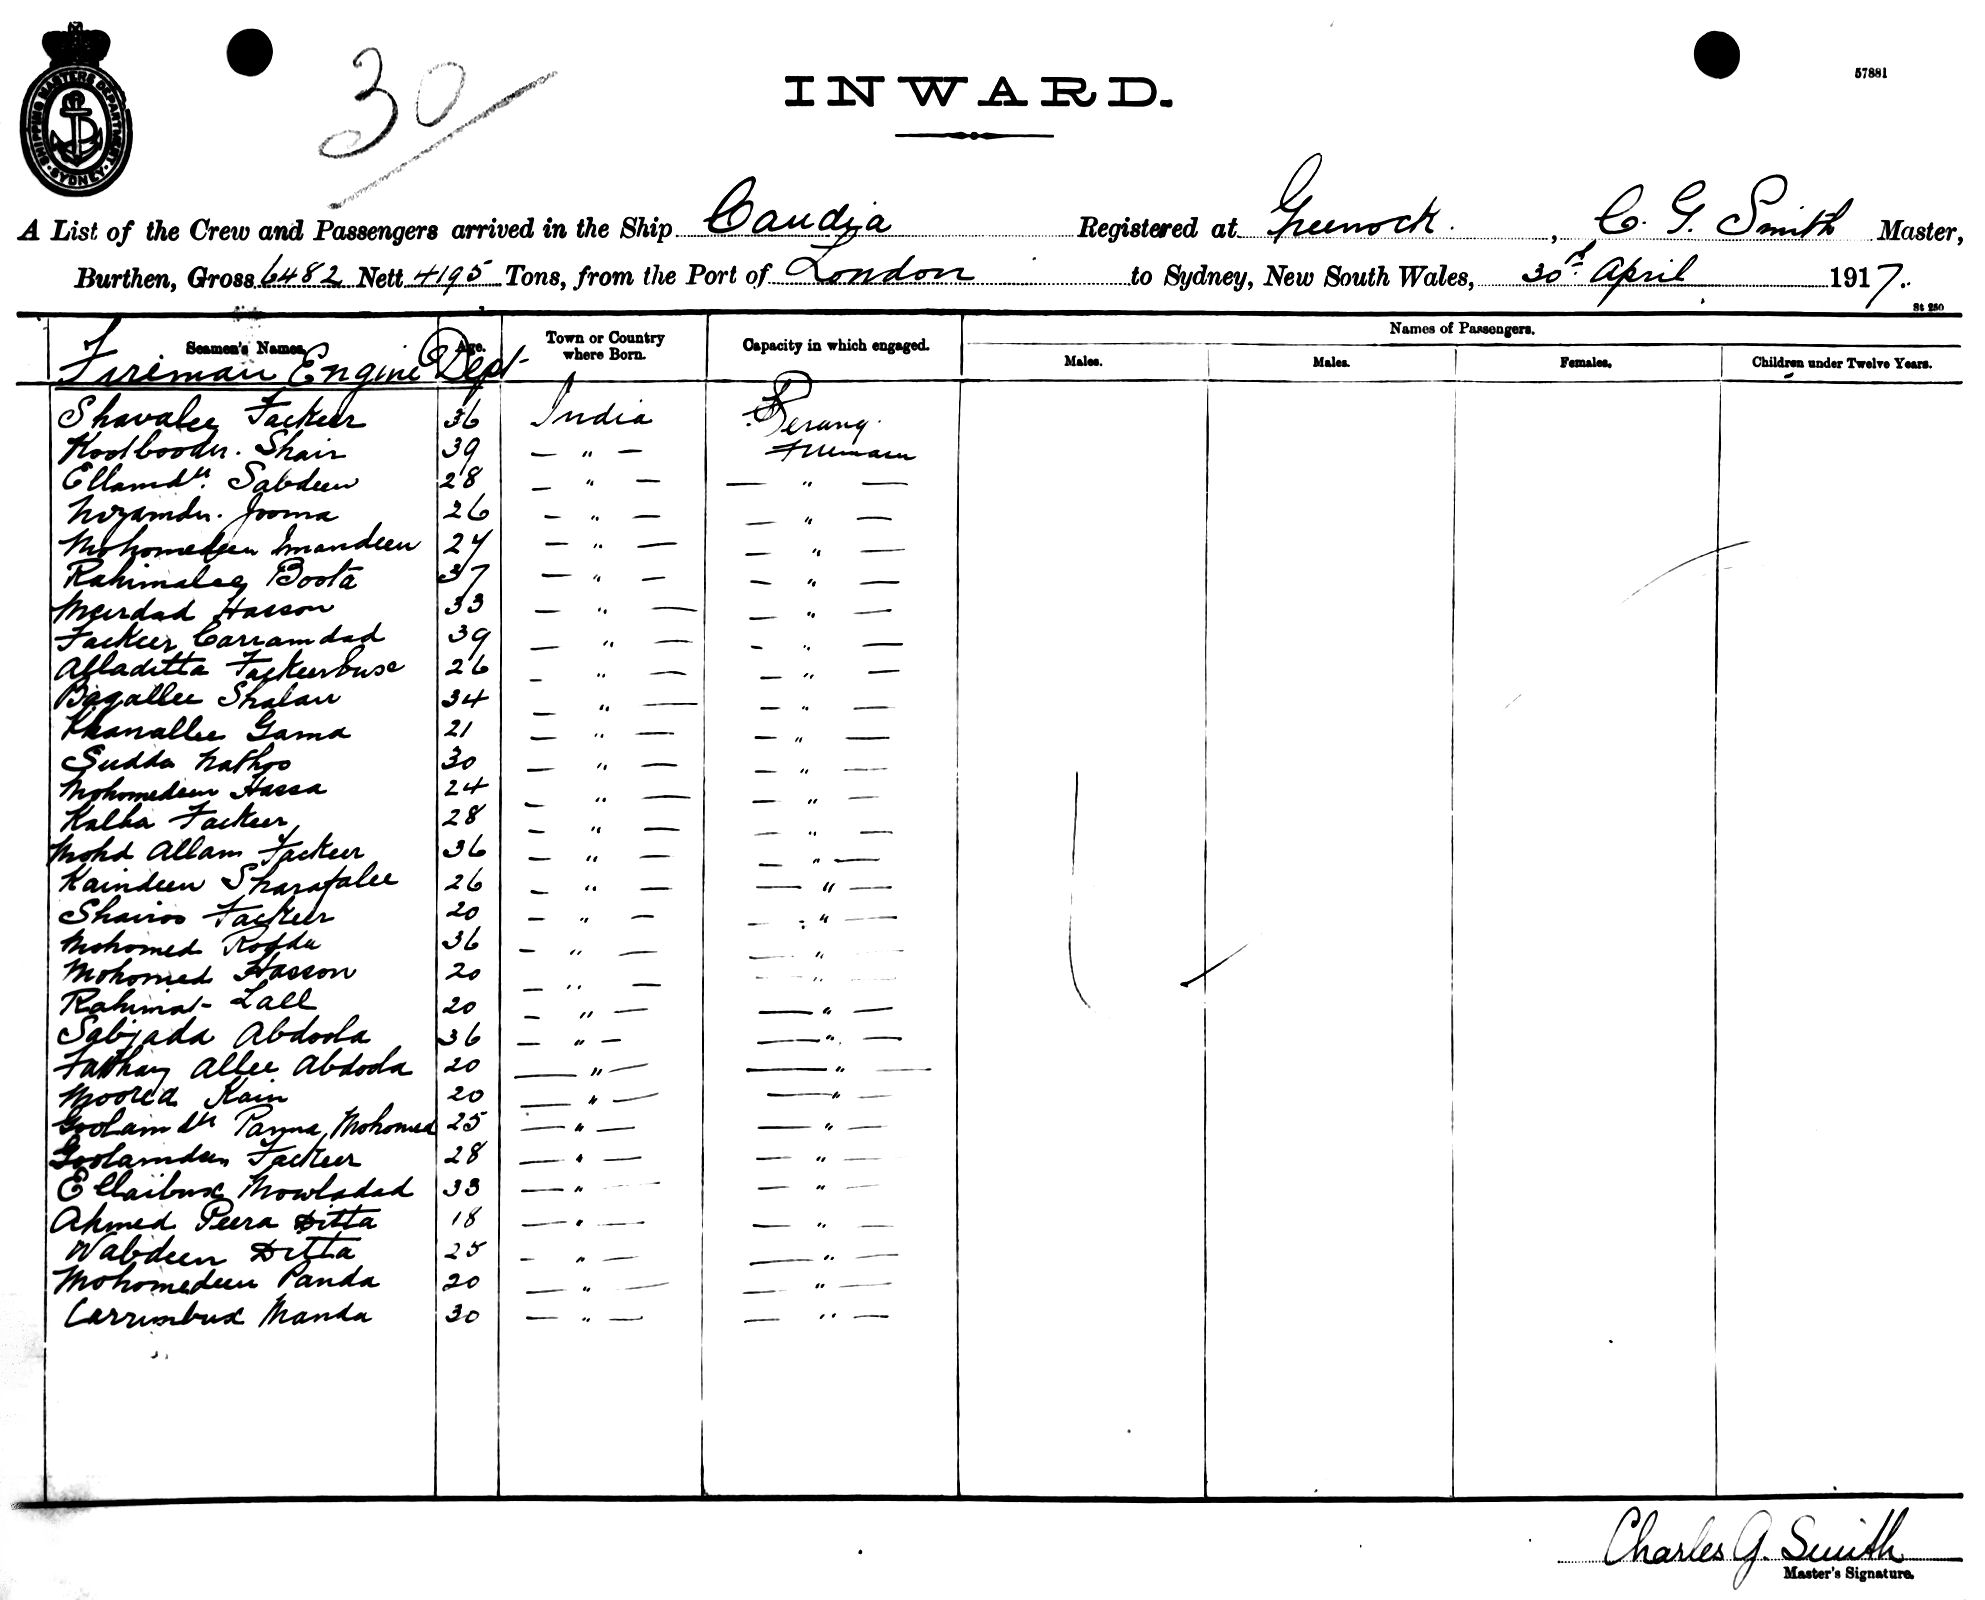 30
INWARD.
57881
SHIPPING MASTERS DEPARTMENT SYDNEY
A List of the Crew and Passengers arrived in the Ship Candia Registered at Greenock, C. G. Smith Master,
Burthen, Gross 6482 Nett 4195 Tons, from the Port of London to Sydney, New South Wales, 30th April 1917.
St 250
Seamen's Names. Age. Town or Country where Born. Capacity in which engaged. Names of Passengers.
Males. Males. Females. Children under Twelve Years.
Fireman Engine Dept
Shavalee Fackeer 36 India Serang.
Kootboodn. Shair 39 — " — Fireman
Ellamdn Sabdeen 28 — " — — " —
Nizamdn. Jooma 26 — " — — " —
Mohomedeen Imandeen 24 — " — — " —
Rahimaleey Boota 37 — " — — " —
Meerdad Hasson 33 — " — — " —
Fackeer Carramdad 39 — " — — " —
Alladitta Fackeerbux 26 — " — — " —
Bagallee Shalan 34 — " — — " —
Khanallee Gama 21 — " — — " —
Sudda Nathoo 30 — " — — " —
Mohomedeen Hassa 24 — " — — " —
Kalha Fackeer 28 — " — — " —
Mohd Allam Fackeer 36 — " — — " —
Kaindeen Sharafalee 26 — " — — " —
Shairoo Fackeer 20 — " — — " —
Mohomed Rodda 36 — " — — " —
Mohomed Hasson 20 — " — — " —
Rahimat Lall 20 — " — — " —
Sabjada Abdoola 36 — " — — " —
Fathay Allee Abdoola 20 — " — — " —
Moored Kain 20 — " — — " —
Goolamdn Panna Mohomed 25 — " — — " —
Goolamdeen Fackeer 28 — " — — " —
Ellaibux Mowladad 33 — " — — " —
Ahmed Peera Ditta 18 — " — — " —
Wabdeen Ditta 25 — " — — " —
Mohomedeen Panda 20 — " — — " —
Carrimbux Manda 30 — " — — " —
Charles G. Smith
Master's Signature.